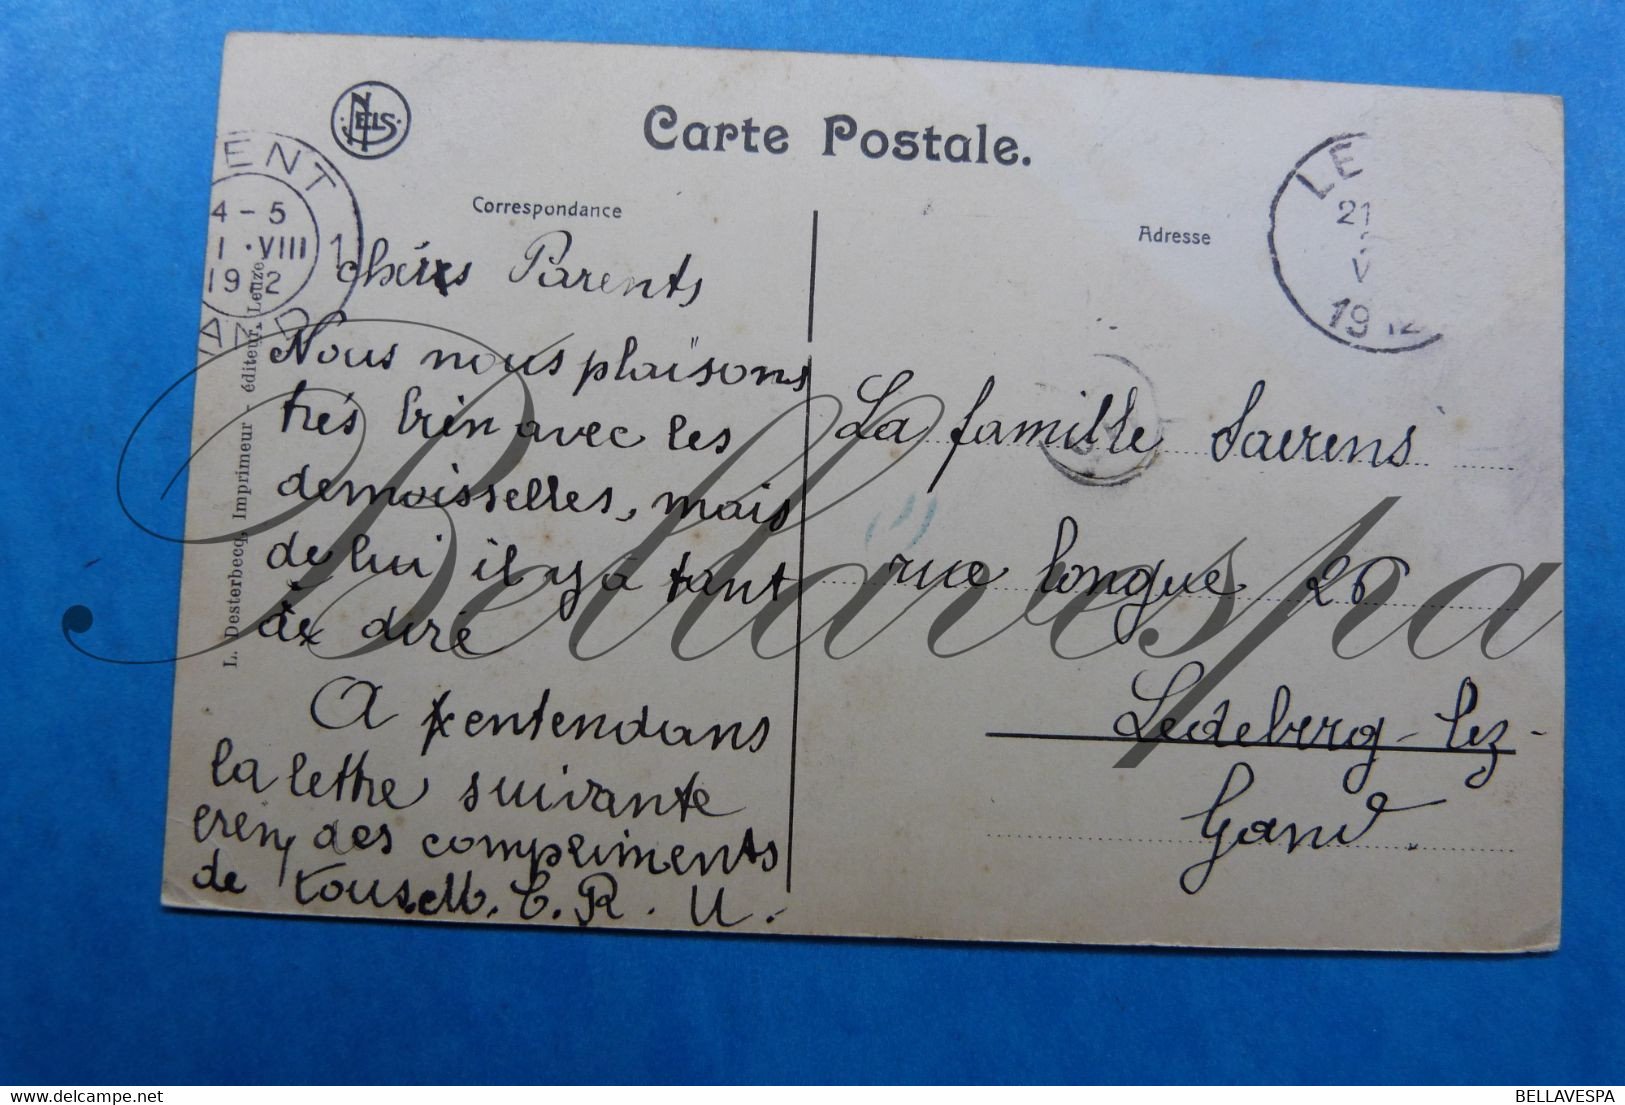 NELS
Carte Postale.
Correspondance
Adresse
ENT
4 - 5
VIII
1
19 2
LE
21
V
19 12
L. Desterbecq, Imprimeur - éditeur, Leuze
chers Parents
Nous nous plaïsons
très bien avec les
demoisselles, mais
de lui il y a tant
à dire
A entendans
la lettre suivante
des compeiments
de tous. M. C. R. U.
La famille Saerens
rue longue 26
Ledeberg - lez -
Gand.
Bellavespa
BELLAVESPA